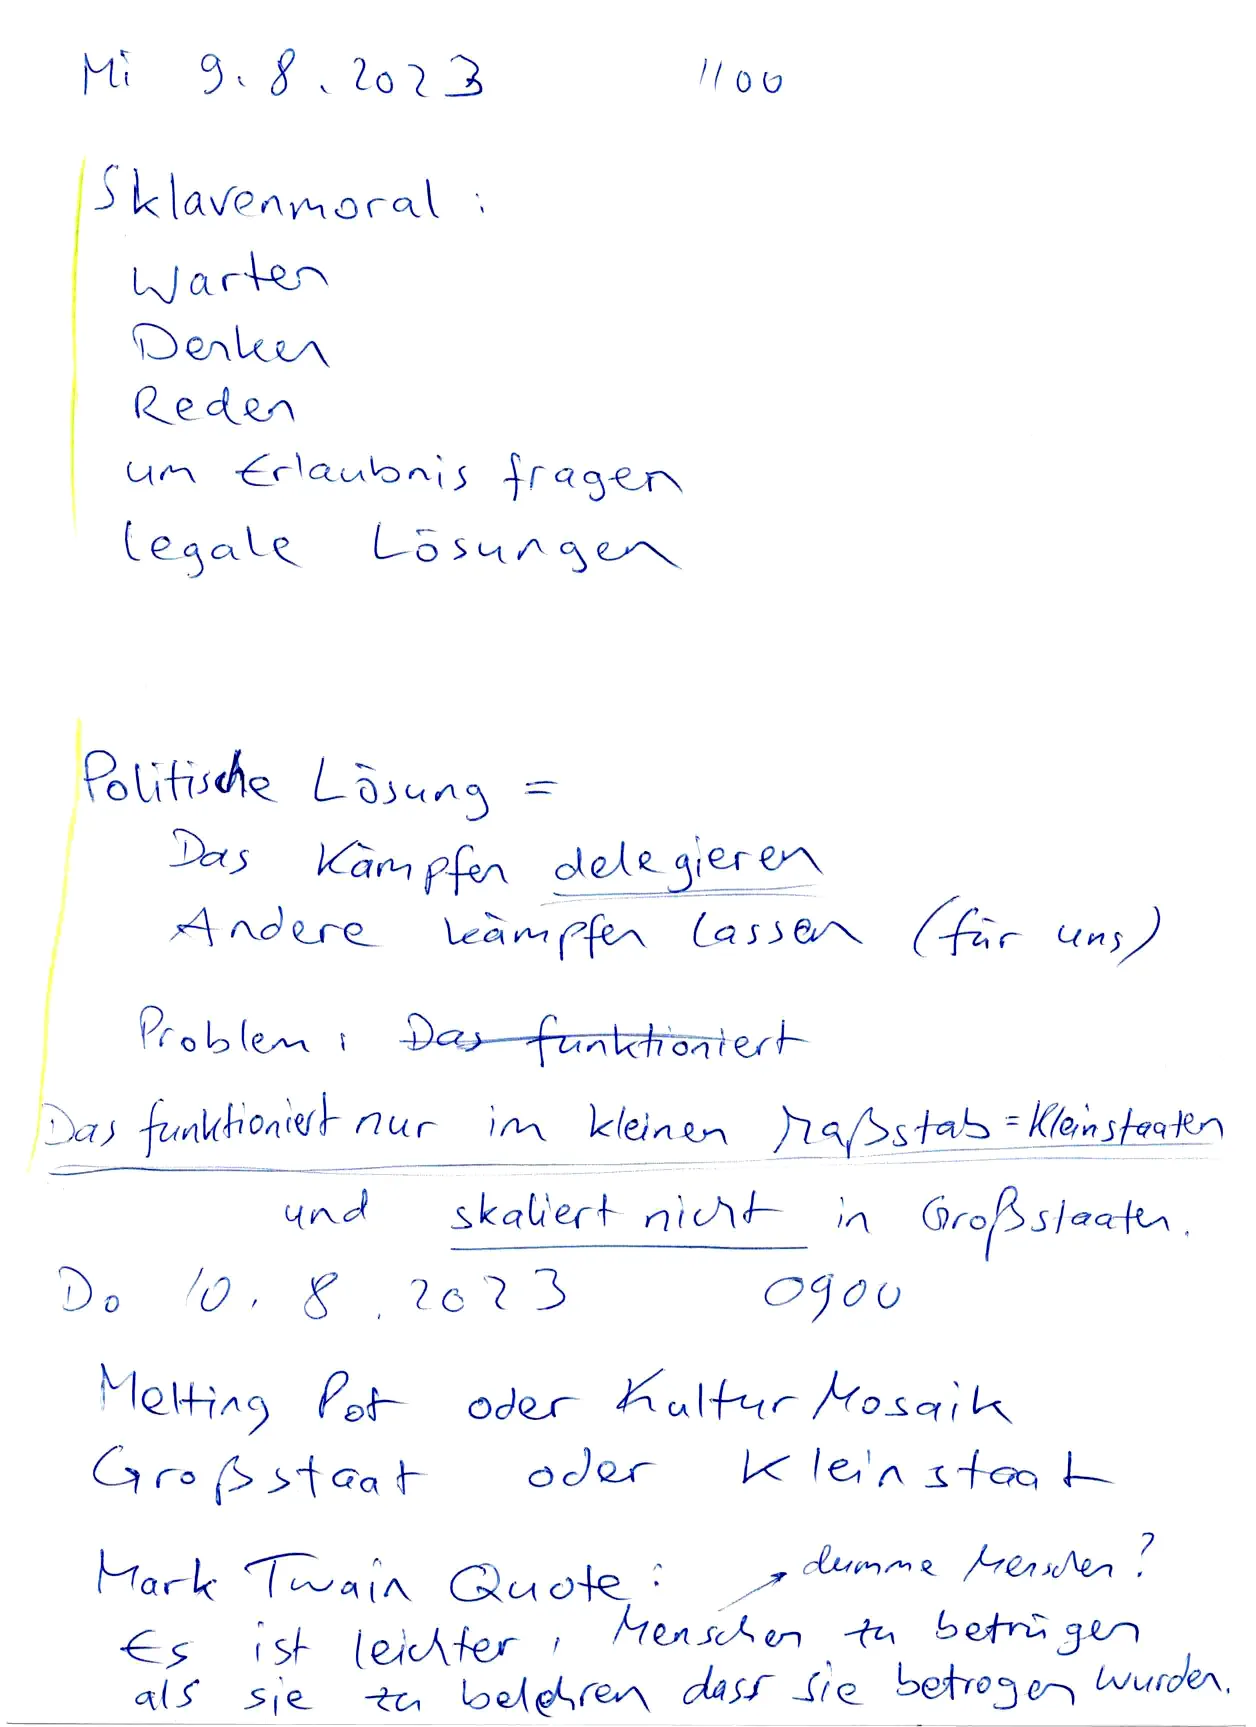 Mi 9.8.2023 1100
Sklavenmoral:
Warten
Denken
Reden
um Erlaubnis fragen
legale Lösungen
Politische Lösung =
Das Kämpfen delegieren
Andere kämpfen lassen (für uns)
Problem: Das funktioniert
Das funktioniert nur im kleinen Maßstab = Kleinstaaten
und skaliert nicht in Großstaaten.
Do 10.8.2023 0900
Melting Pot oder Kultur Mosaik
Großstaat oder Kleinstaat
Mark Twain Quote: → dumme Menschen?
Es ist leichter, Menschen zu betrügen
als sie zu belehren dass sie betrogen wurden.